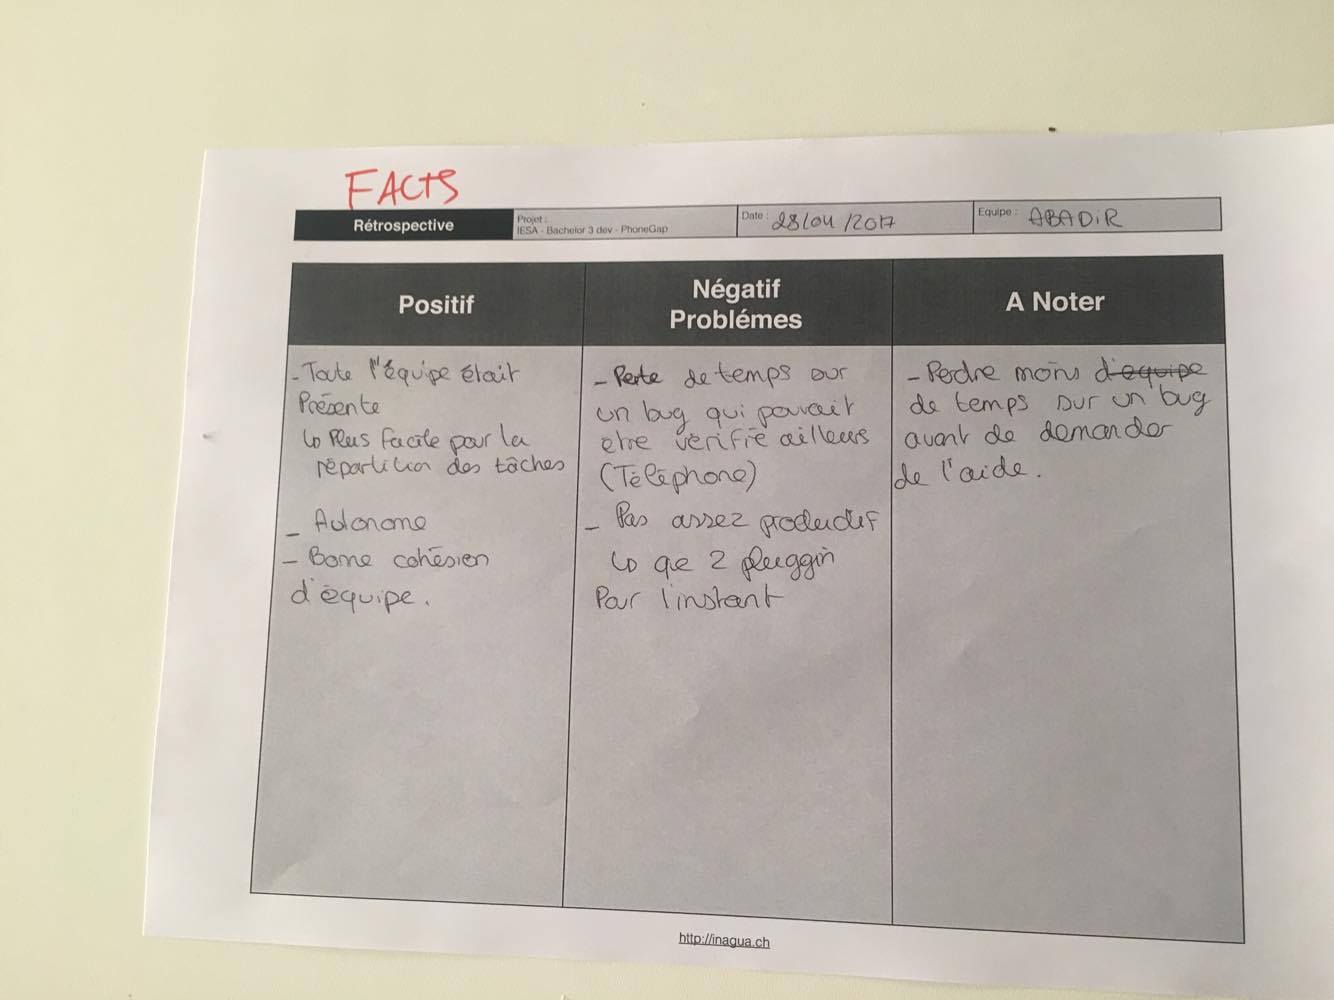 FACTS
Rétrospective
Projet :
IESA - Bachelor 3 dev - PhoneGap
Date : 28/04/2017
Equipe : ABADiR
Positif
Négatif
Problémes
A Noter
- Toute l'équipe était
Présente
↳ Plus facile pour la
répartition des tâches
- Autonome
- Bonne cohésion
d'équipe.
- Perte de temps sur
un bug qui pouvait
etre vérifié ailleurs
(Téléphone)
- Pas assez productif
↳ que 2 pluggin
Pour l'instant
- Perdre moins d'equipe
de temps sur un bug
avant de demander
de l'aide.
http://inagua.ch